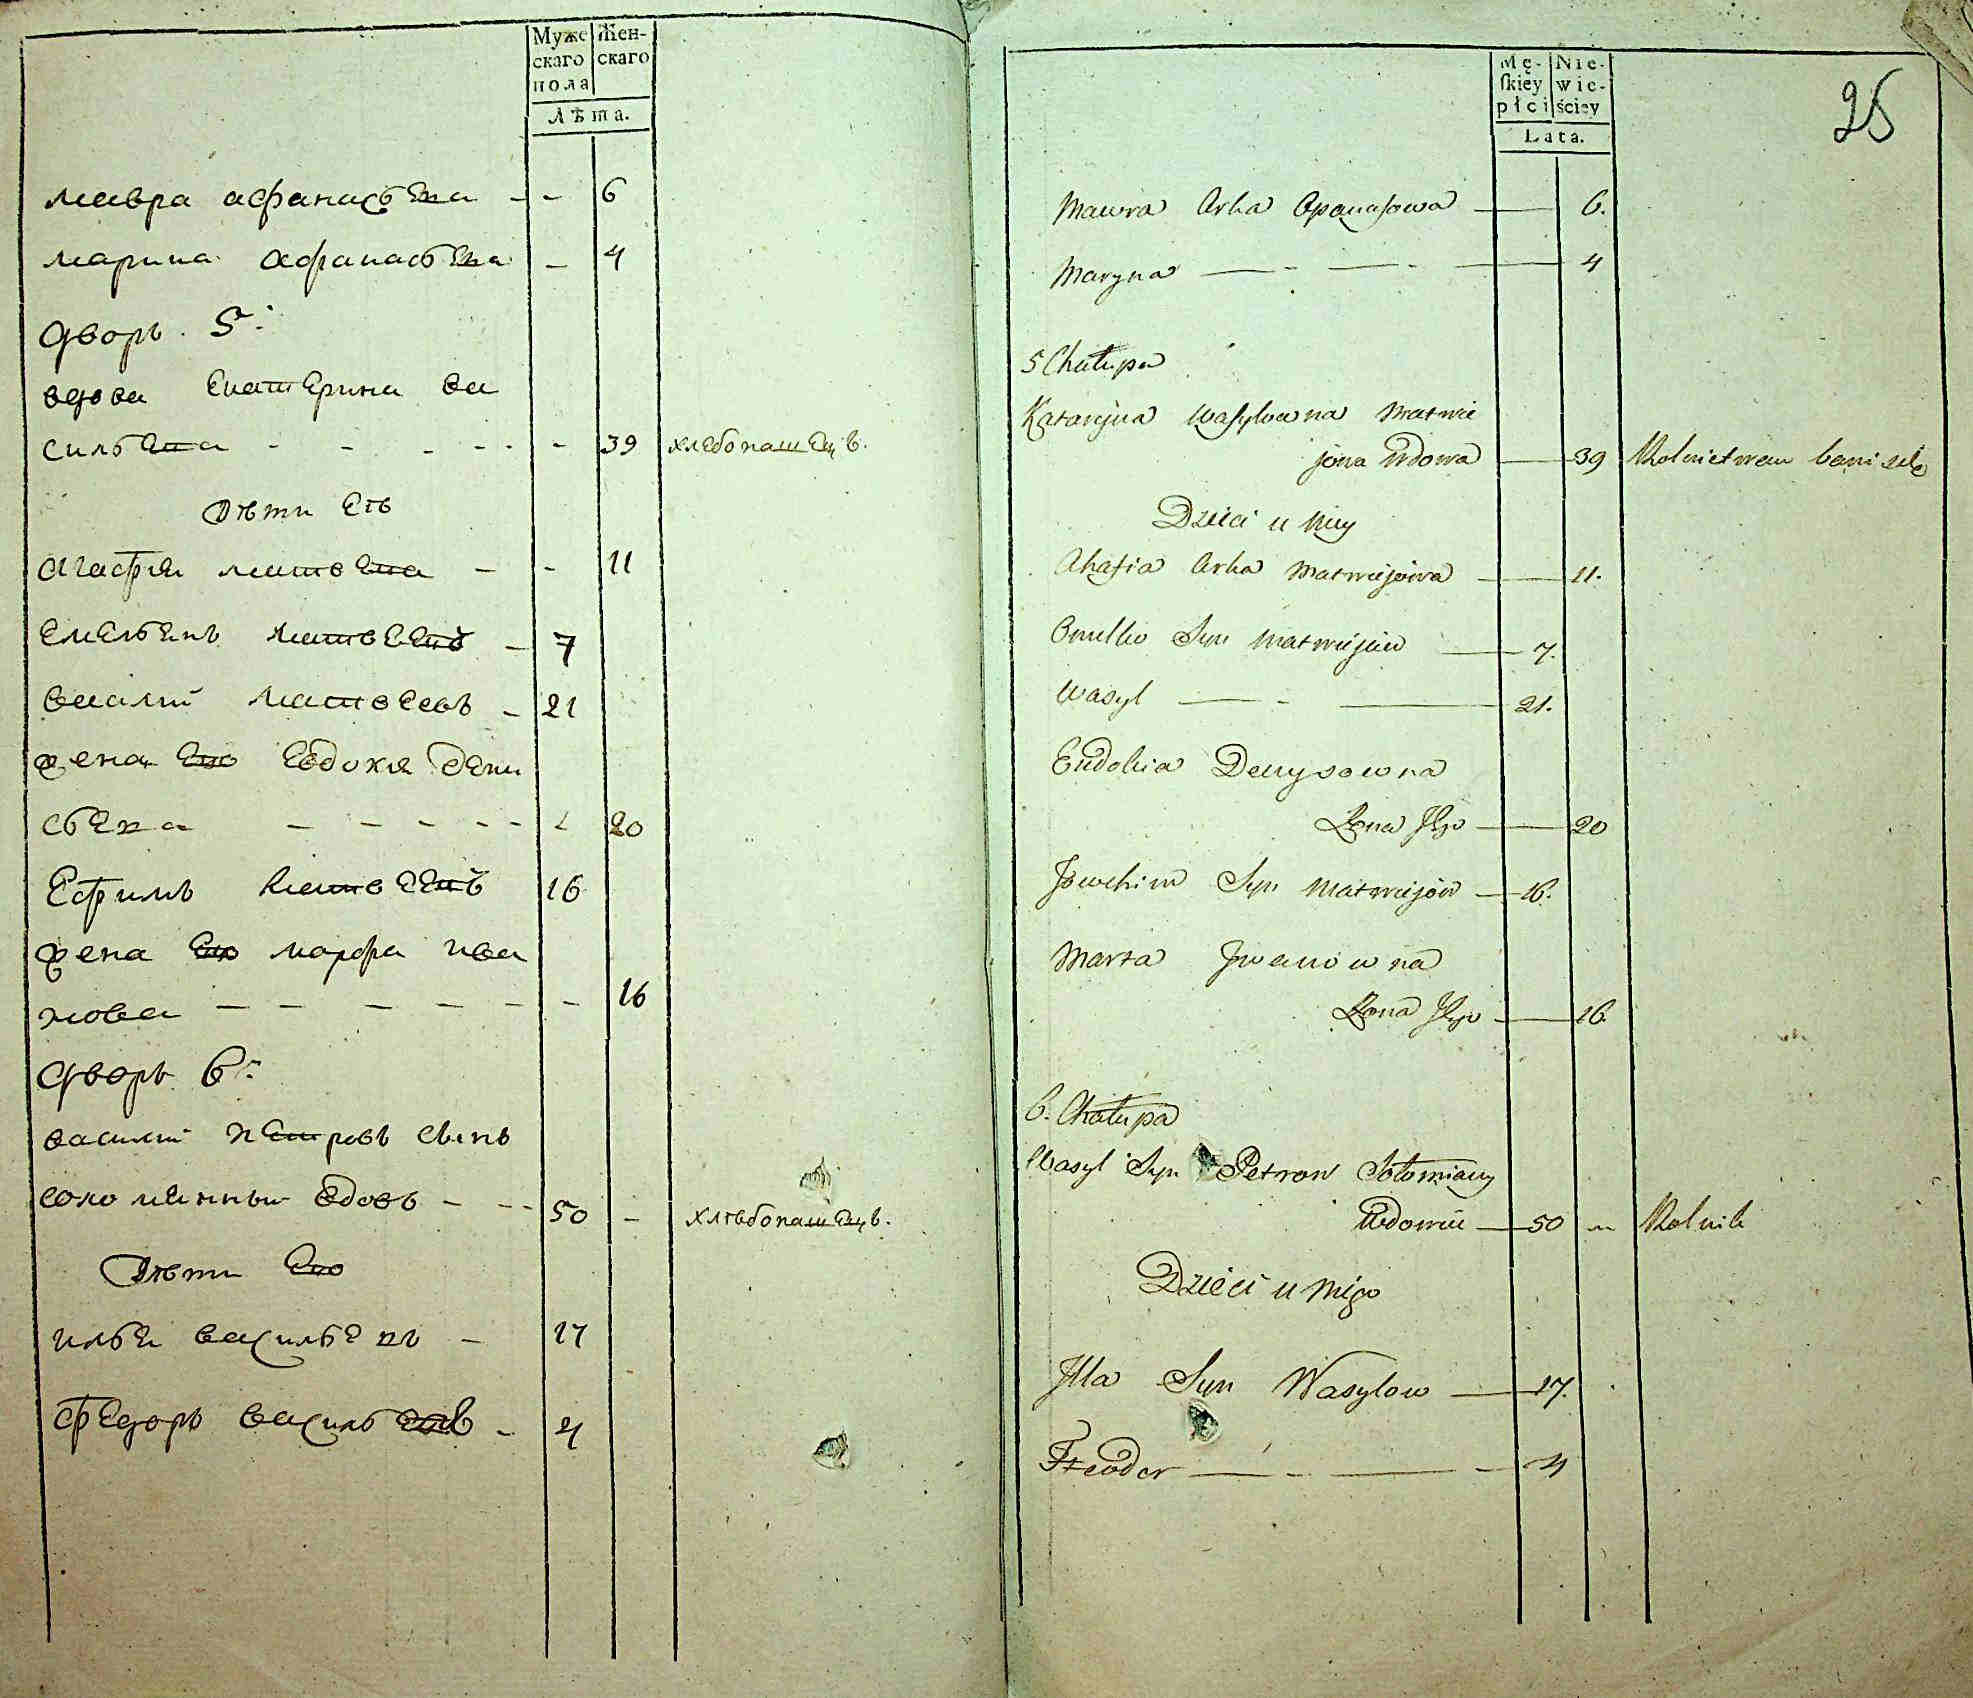 Муже Жен-
скаго скаго
пола
Лѣта.
мавра афанасьева - - 6
марина афанасьева - 4
дворъ 5:
вдова Екатерина ва
сильева - - - - - - 39 хлебопашецъ.
дѣти Еѣ
агафия матвева - - 11
Емельянъ матвеевъ - 7
василий матвеевъ - 21
жена Его Евдокия дени
сьева - - - - - - 20
Ефимъ матвеевъ 16
жена Его марфа ива
нова - - - - - - - 16
дворъ 6:
василий петровъ сынъ
соломянный вдовъ - - - 50 - хлѣбопашецъ.
дѣти Его
илья васильевъ - 17
федоръ васильевъ - 4
Mę- Nie-
ſkiey wie-
płci ściey
Lata.
25
Mawra Corka Opanasowa 6.
Maryna 4
5 Chałupa
Katarzyna Wasylowna Matwie
jowa Wdowa 39 Rolnictwem bawi się
Dzieci u niey
Ahafia Corka Matwiejowa 11.
Omelko Syn Matwiejow 7.
Wasyl 21.
Eudokia Denysowna
Żona Jego 20
Jowchim Syn Matwiejow 16.
Marta Jwanowna
Żona Jego 16.
6. Chałupa
Wasyl Syn Petrow Sołomiany
Wdowiec 50 Rolnik
Dzieci u niego
Jlla Syn Wasylow 17.
Fteodor 4